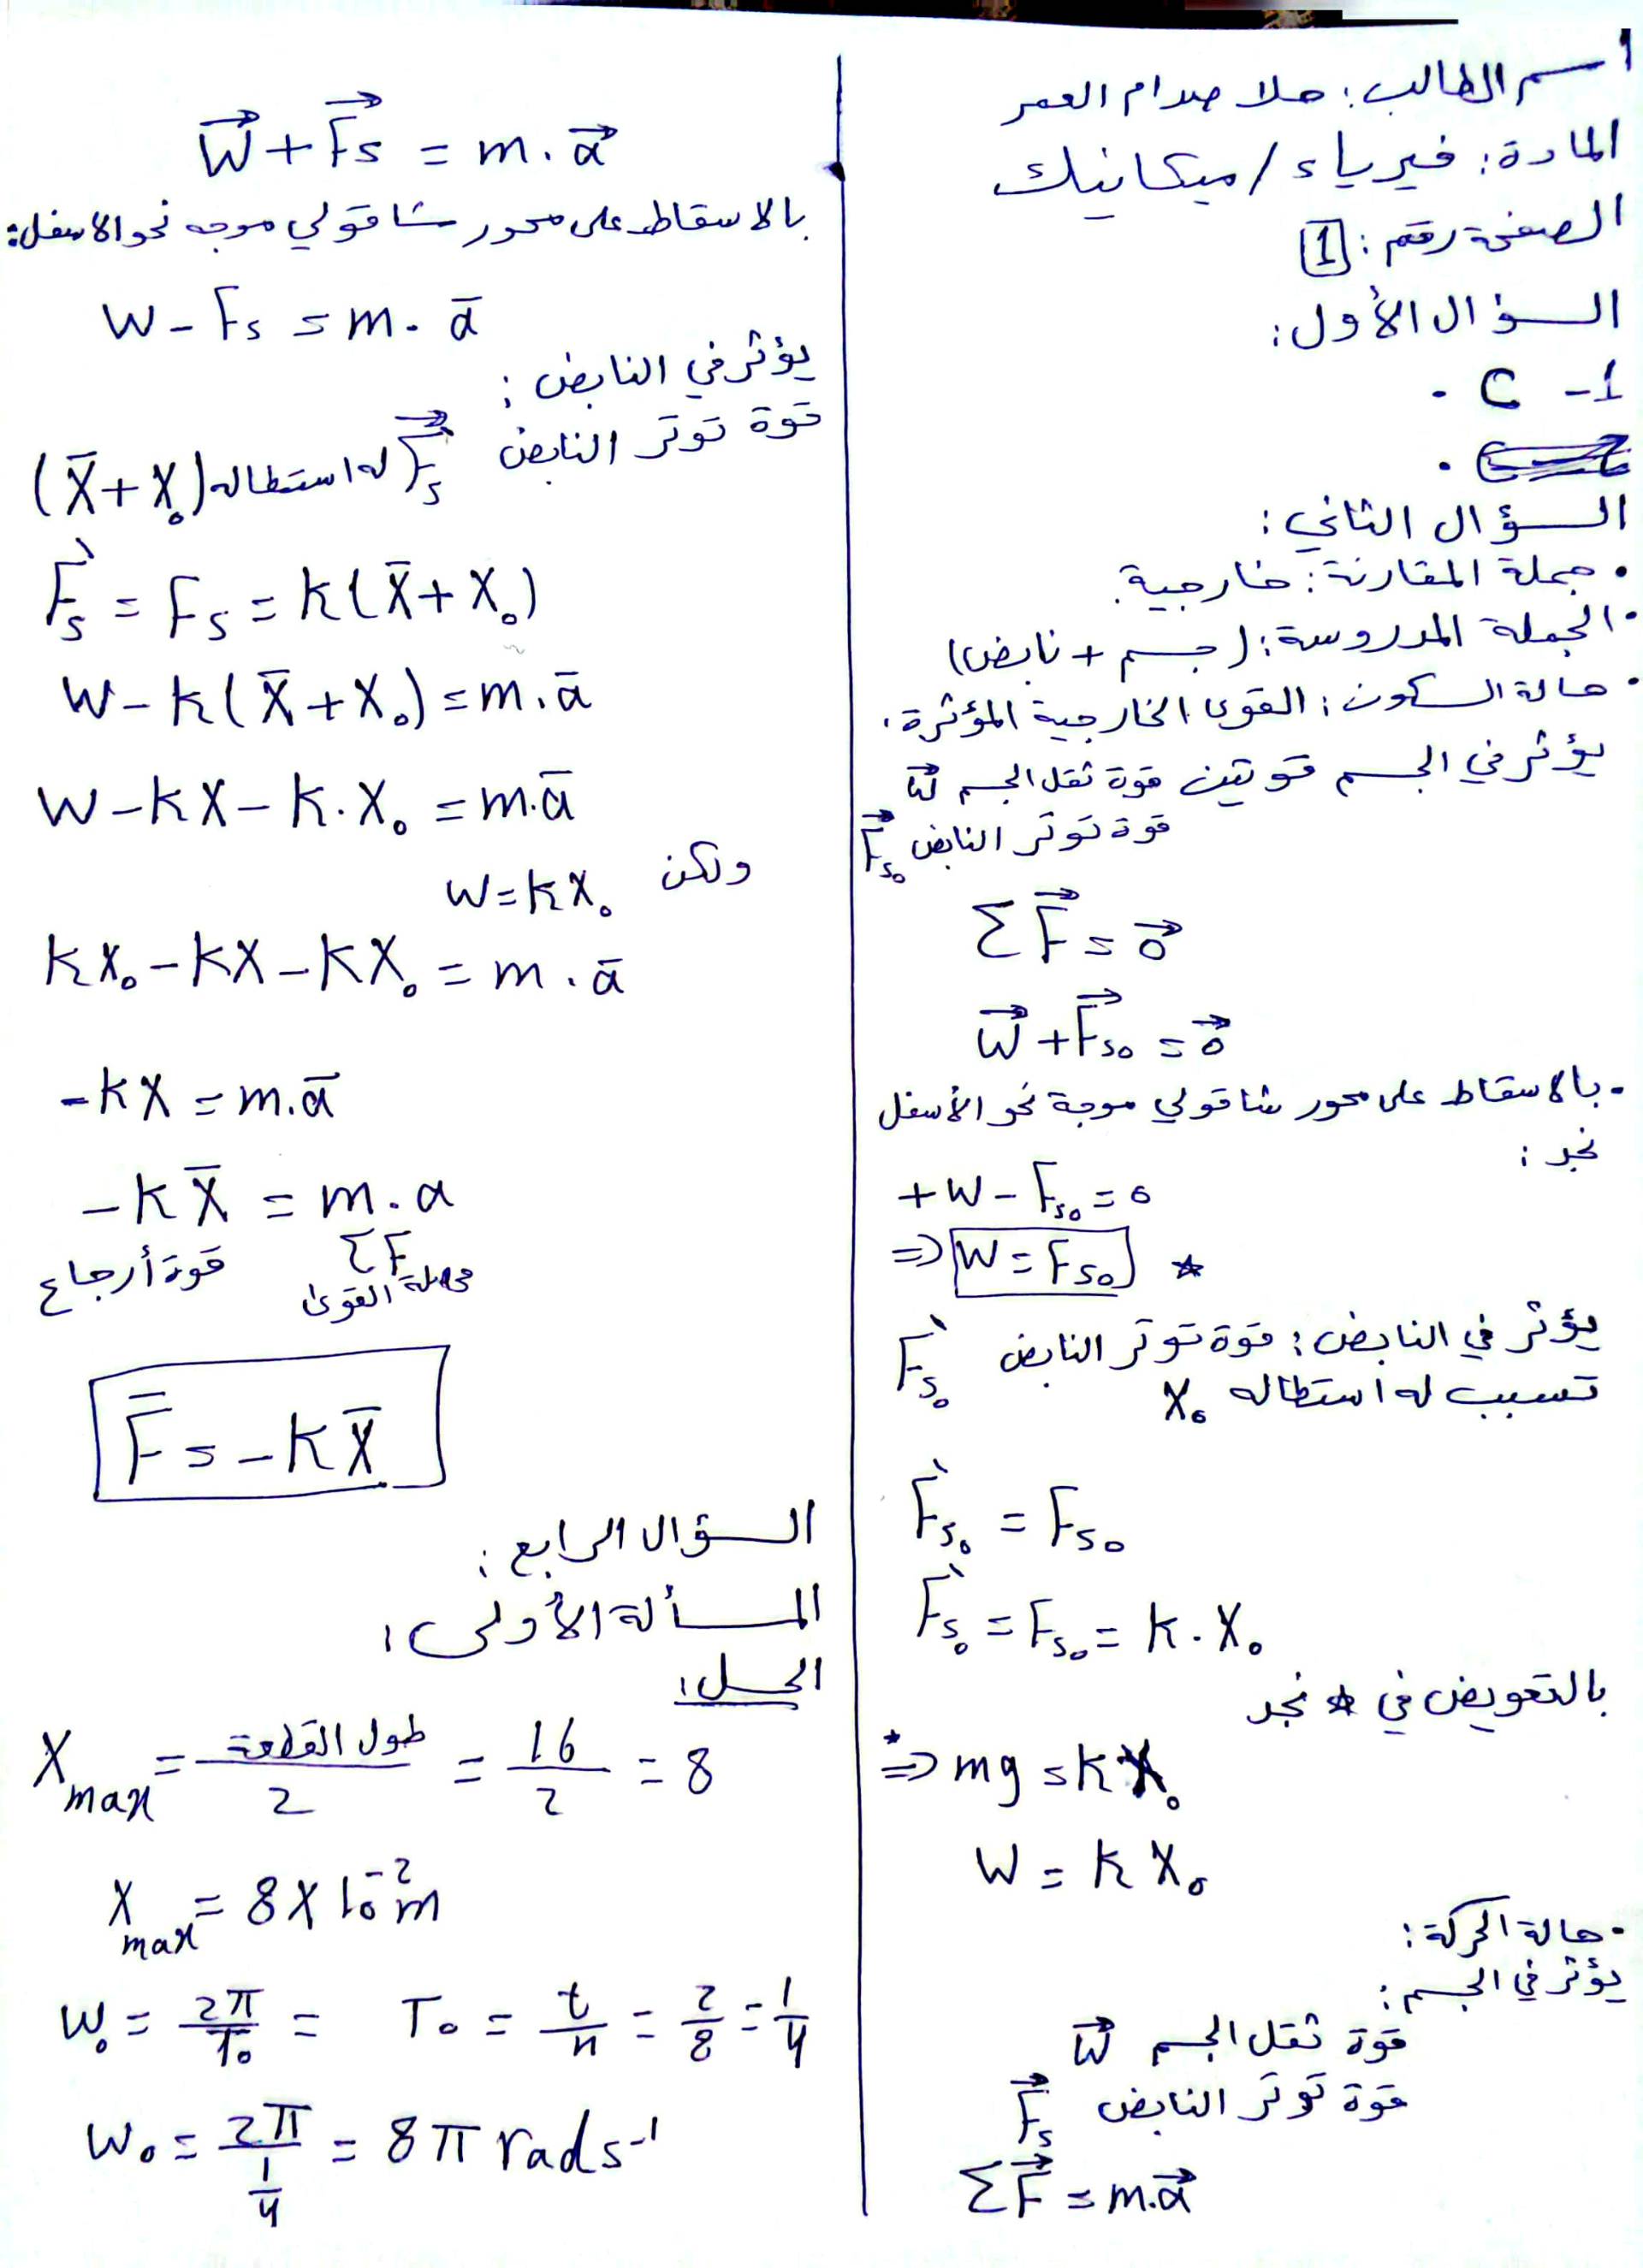 اسم الطالب: حلا صدام العمر
المادة: فيزياء / ميكانيك
الصفحة رقم: 1
السؤال الأول:
1- C .
السؤال الثاني:
• جملة المقارنة: خارجية.
• الجملة المدروسة: (جسم + نابض)
• حالة السكون: القوى الخارجية المؤثرة.
يؤثر في الجسم قوتين قوة ثقل الجسم W⃗
قوة توتر النابض F⃗s₀
ΣF⃗ = 0⃗
W⃗ + F⃗s₀ = 0⃗
- بالاسقاط على محور شاقولي موجة نحو الأسفل
نجد:
+W - Fs₀ = 0
⇒ W = Fs₀ ☆
يؤثر في النابض: قوة توتر النابض F's₀
تسبب له استطاله X₀
F's₀ = Fs₀
F's₀ = Fs₀ = k . X₀
بالتعويض في ☆ نجد
⇒ mg = kX₀
W = k X₀
- حالة الحركة:
يؤثر في الجسم:
قوة ثقل الجسم W⃗
قوة توتر النابض F⃗s
ΣF⃗ = m.a⃗
W⃗ + F⃗s = m . a⃗
بالاسقاط على محور شاقولي موجه نحو الاسفل:
W - Fs = m . a̅
يؤثر في النابض:
قوة توتر النابض F⃗'s له استطاله (X̅ + X₀)
F's = Fs = k(X̅ + X₀)
W - k(X̅ + X₀) = m.a̅
W - kX - k . X₀ = m.a̅
ولكن W = kX₀
kX₀ - kX - kX₀ = m . a̅
-kX = m.a̅
-kX̅ = m . a
قوة أرجاع ΣF محصلة القوى
F̅ = -kX̅
السؤال الرابع:
المسألة الأولى:
الحل:
Xmax = طول القطعة / 2 = 16/2 = 8
Xmax = 8 X 10⁻² m
W₀ = 2π/T₀ = T₀ = t/n = 2/8 = 1/4
W₀ = 2π/(1/4) = 8π rad s⁻¹